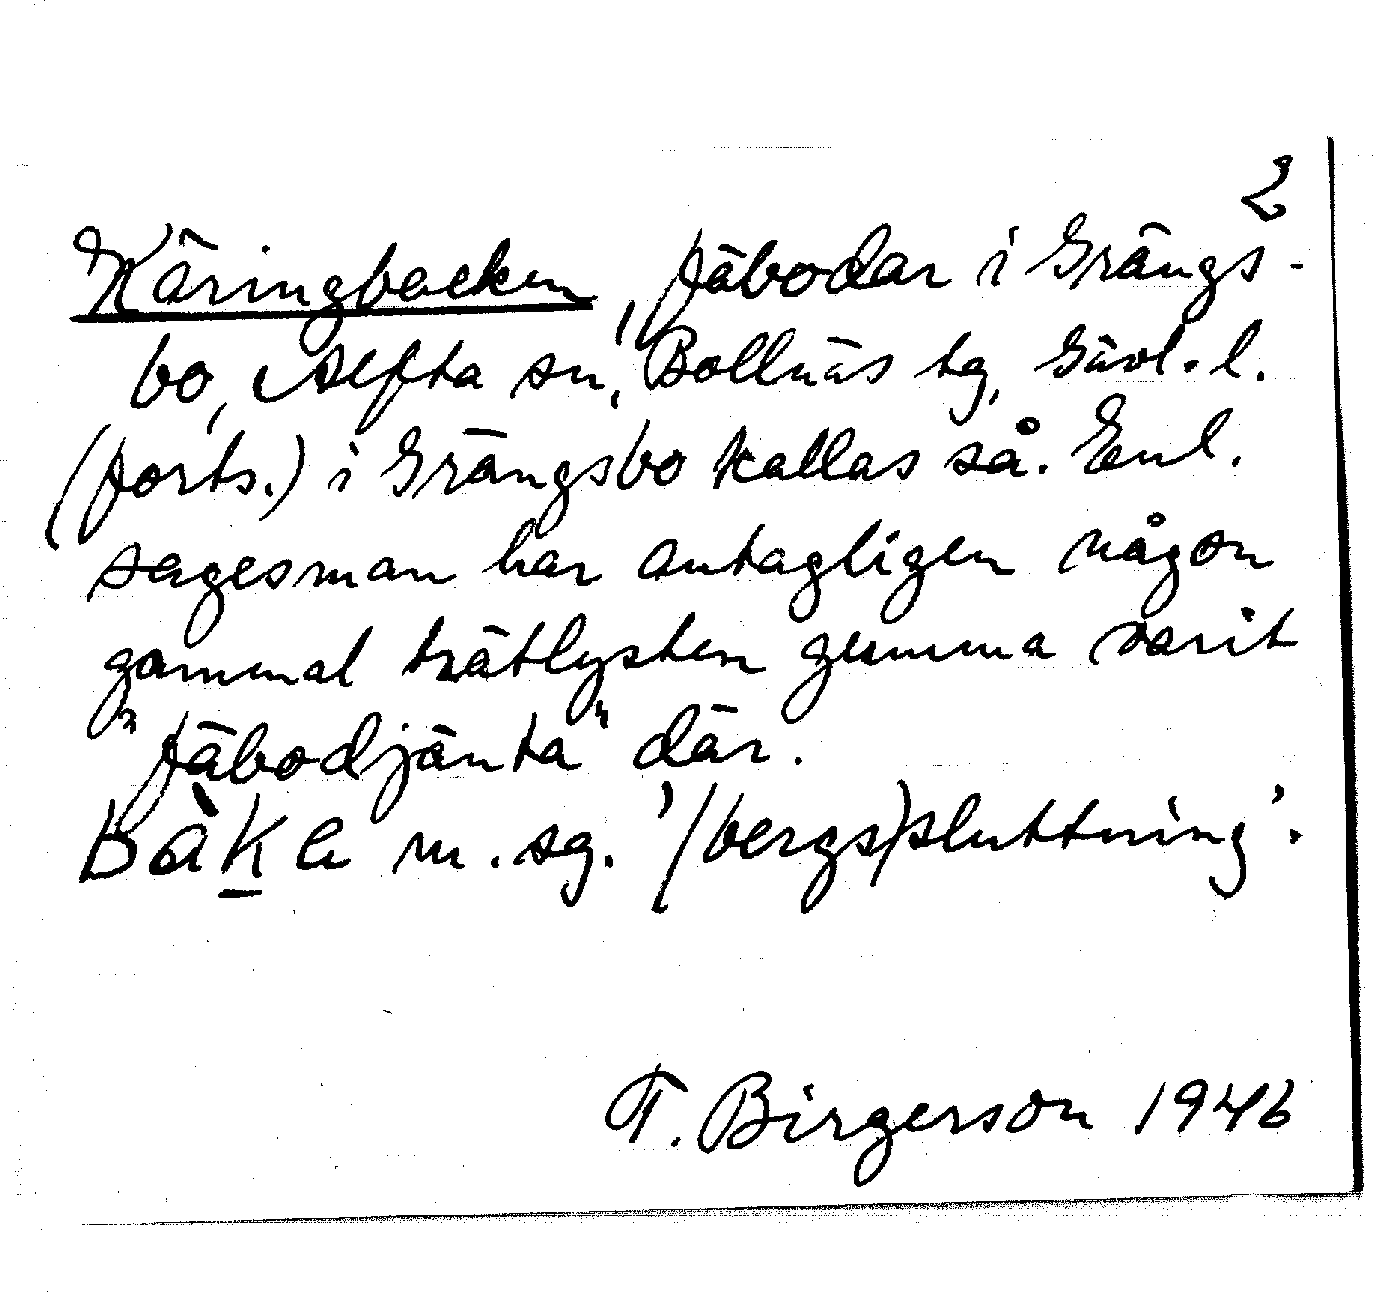 2
Käringbacken, fäbodar i Grängs-
bo, Alfta sn, Bollnäs tg, Gävl. l.
(forts.) i Grängsbo kallas så. Enl.
sagesman har antagligen någon
gammal trätlysten gumma varit
"fäbodjänta" där.
bàka m. sg. '(bergs)sluttning'.
T. Birgerson 1946